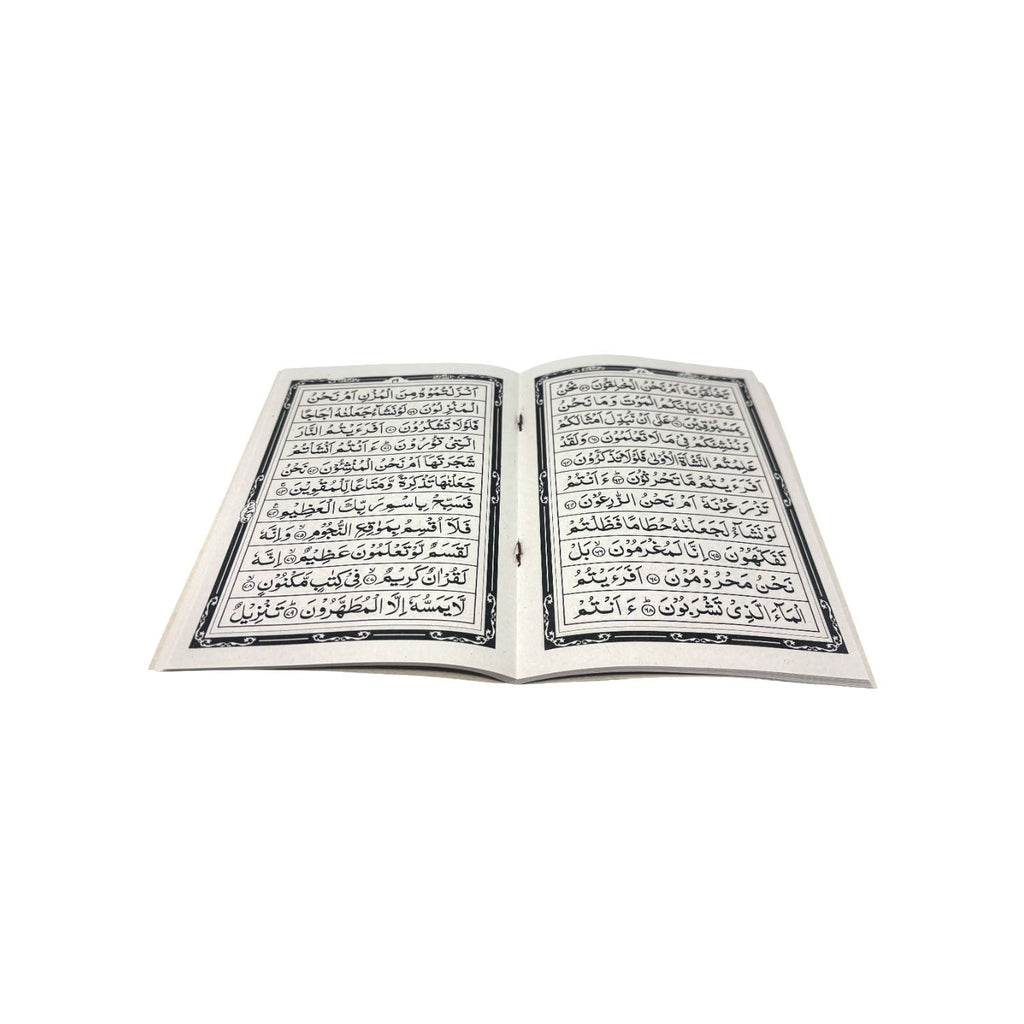 ٢٨
تَخْلُقُوْنَهٗٓ اَمْ نَحْنُ الْخٰلِقُوْنَ ﴿٥٩﴾ نَحْنُ
قَدَّرْنَا بَيْنَكُمُ الْمَوْتَ وَمَا نَحْنُ
بِمَسْبُوْقِيْنَ ﴿٦٠﴾ عَلٰٓى اَنْ نُّبَدِّلَ اَمْثَالَكُمْ
وَنُنْشِئَكُمْ فِيْ مَا لَا تَعْلَمُوْنَ ﴿٦١﴾ وَلَقَدْ
عَلِمْتُمُ النَّشْاَةَ الْاُوْلٰى فَلَوْلَا تَذَكَّرُوْنَ ﴿٦٢﴾
اَفَرَءَيْتُمْ مَّا تَحْرُثُوْنَ ﴿٦٣﴾ ءَاَنْتُمْ
تَزْرَعُوْنَهٗٓ اَمْ نَحْنُ الزّٰرِعُوْنَ ﴿٦٤﴾
لَوْ نَشَآءُ لَجَعَلْنٰهُ حُطَامًا فَظَلْتُمْ
تَفَكَّهُوْنَ ﴿٦٥﴾ اِنَّا لَمُغْرَمُوْنَ ﴿٦٦﴾ بَلْ
نَحْنُ مَحْرُوْمُوْنَ ﴿٦٧﴾ اَفَرَءَيْتُمُ
الْمَآءَ الَّذِيْ تَشْرَبُوْنَ ﴿٦٨﴾ ءَاَنْتُمْ
٢٩
اَنْزَلْتُمُوْهُ مِنَ الْمُزْنِ اَمْ نَحْنُ
الْمُنْزِلُوْنَ ﴿٦٩﴾ لَوْ نَشَآءُ جَعَلْنٰهُ اُجَاجًا
فَلَوْلَا تَشْكُرُوْنَ ﴿٧٠﴾ اَفَرَءَيْتُمُ النَّارَ
الَّتِيْ تُوْرُوْنَ ﴿٧١﴾ ءَاَنْتُمْ اَنْشَاْتُمْ
شَجَرَتَهَآ اَمْ نَحْنُ الْمُنْشِئُوْنَ ﴿٧٢﴾ نَحْنُ
جَعَلْنٰهَا تَذْكِرَةً وَّمَتَاعًا لِّلْمُقْوِيْنَ ﴿٧٣﴾
فَسَبِّحْ بِاسْمِ رَبِّكَ الْعَظِيْمِ ﴿٧٤﴾
فَلَآ اُقْسِمُ بِمَوٰقِعِ النُّجُوْمِ ﴿٧٥﴾ وَاِنَّهٗ
لَقَسَمٌ لَّوْ تَعْلَمُوْنَ عَظِيْمٌ ﴿٧٦﴾ اِنَّهٗ
لَقُرْاٰنٌ كَرِيْمٌ ﴿٧٧﴾ فِيْ كِتٰبٍ مَّكْنُوْنٍ ﴿٧٨﴾
لَّا يَمَسُّهٗٓ اِلَّا الْمُطَهَّرُوْنَ ﴿٧٩﴾ تَنْزِيْلٌ